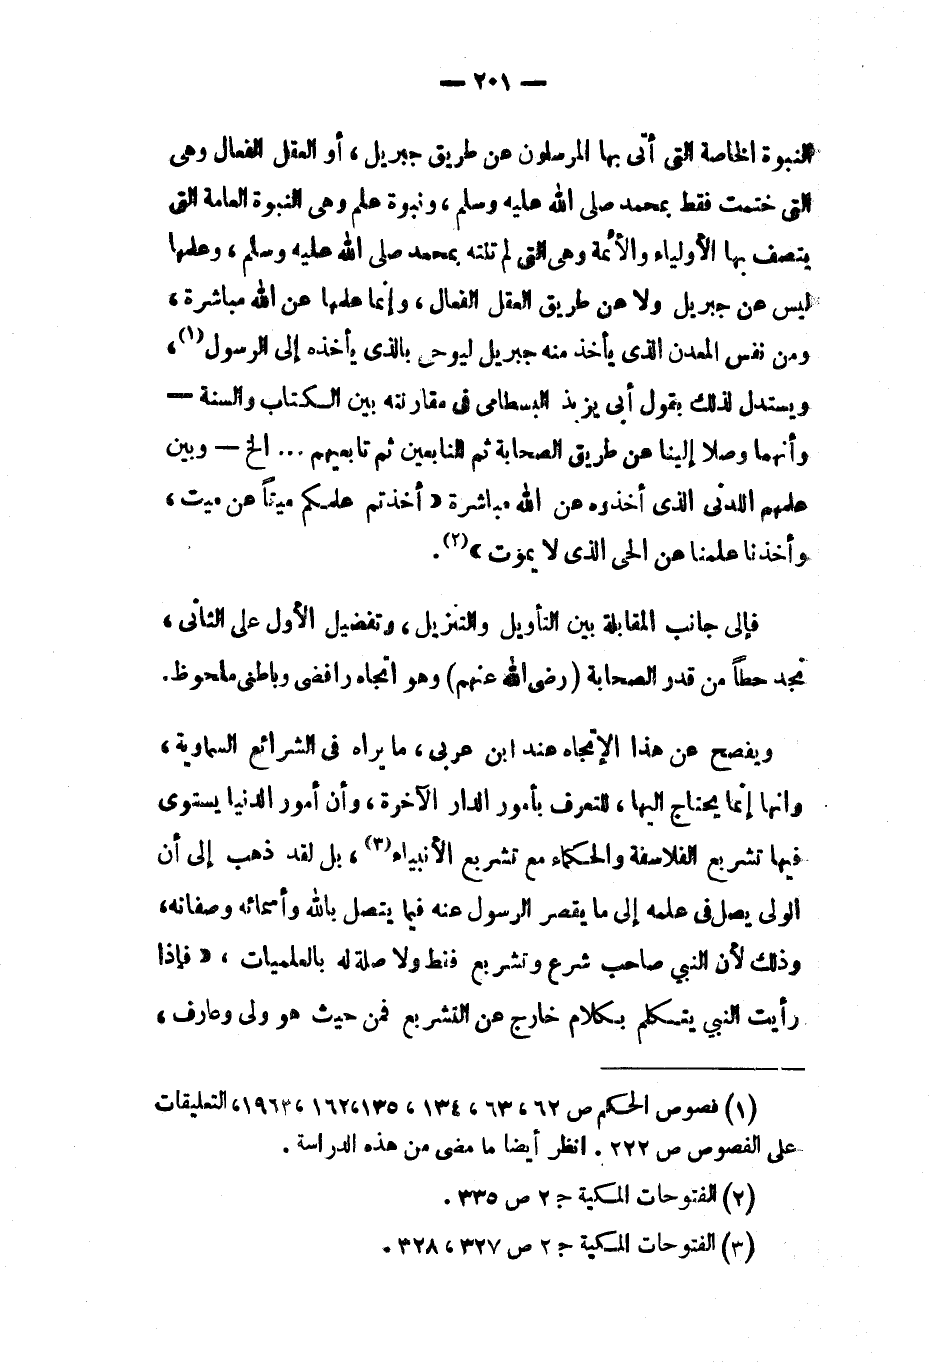 — ٢٠١ —
النبوة الخاصة التى أتى بها المرسلون عن طريق جبريل ، أو العقل الفعال وهى
التى ختمت فقط بمحمد صلى الله عليه وسلم ، ونبوة علم وهى النبوة العامة التى
يتصف بها الأولياء والأئمة وهى التى لم تنته بمحمد صلى الله عليه وسلم ، وعلمها
ليس عن جبريل ولا عن طريق العقل الفعال ، وإنما علمها عن الله مباشرة ،
ومن نفس المعدن الذى يأخذ منه جبريل ليوحى بالذى يأخذه إلى الرسول(١) ،
ويستدل لذلك بقول أبى يزيد البسطامى فى مقارنته بين الكتاب والسنة —
وأنهما وصلا إلينا عن طريق الصحابة ثم التابعين ثم تابعيهم ... الخ — وبين
علمهم اللدنى الذى أخذوه عن الله مباشرة « أخذتم علمكم ميتاً عن ميت ،
وأخذنا علمنا عن الحى الذى لا يموت »(٢) .
فإلى جانب المقابلة بين التأويل والتنزيل ، وتفضيل الأول على الثانى ،
نجد حطاً من قدر الصحابة (رضى الله عنهم) وهو اتجاه رافضى وباطنى ملحوظ.
ويفصح عن هذا الإتجاه عند ابن عربى ، ما يراه فى الشرائع السماوية ،
وانها إنما يحتاج اليها ، للتعرف بأمور الدار الآخرة ، وأن أمور الدنيا يستوى
فيها تشريع الفلاسفة والحكماء مع تشريع الأنبياء(٣) ، بل لقد ذهب إلى أن
الولى يصل فى علمه إلى ما يقصر الرسول عنه فيما يتصل بالله وأسمائه وصفاته،
وذلك لأن النبي صاحب شرع وتشريع فقط ولا صلة له بالعلميات ، « فإذا
رأيت النبي يتكلم بكلام خارج عن التشريع فمن حيث هو ولى وعارف ،
(١) فصوص الحكم ص ٦٢ ، ٦٣ ، ١٣٤ ، ١٣٥،١٦٢ ،١٩٦٣، التعليقات
على الفصوص ص ٢٢٢ . انظر أيضا ما مضى من هذه الدراسة .
(٢) الفتوحات المكية ج ٢ ص ٣٣٥ .
(٣) الفتوحات المكية ج ٢ ص ٣٢٧ ، ٣٢٨ .